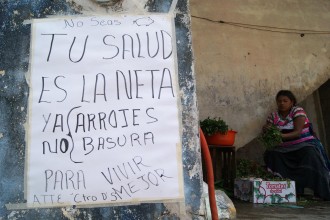 No Seas
TU SALUD
ES LA NETA
YA ARROJES
NO BASURA
PARA VIVIR
MEJOR
ATTE